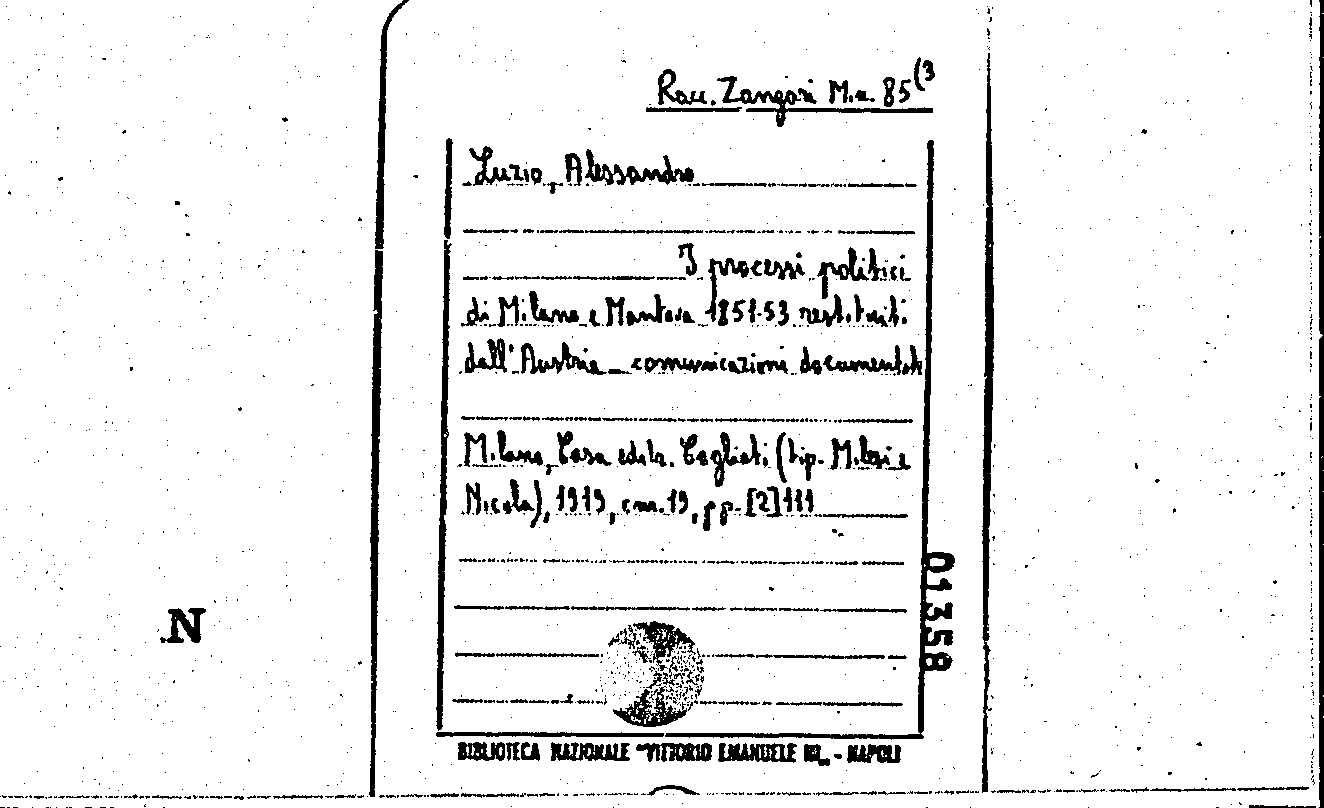 Racc. Zangari M.a. 85(3
Luzio, Alessandro
I processi politici
di Milano e Mantova 1851-53 restituiti
dall'Austria - comunicazioni documentate
Milano, Casa editr. Cogliati (tip. Milesi e
Nicola), 1919, cm. 19, pp. [2] 111
01358
N
BIBLIOTECA NAZIONALE "VITTORIO EMANUELE III„ - NAPOLI